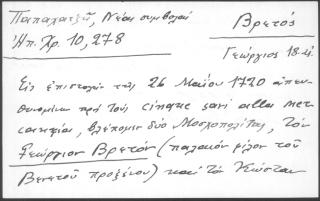 Παπαχατζῆ, Νέαι συμβολαί
Ἠπ. Χρ. 10, 278
Βρετός
Γεώργιος 18 αἰ.
Εἰς ἐπιστολήν τῆς 26 Μαΐου 1720 ἀπευ-
θυνομένην πρός τούς cinque savi alla mer-
canzia, βλέπομεν δύο Μοσχοπολίτας, τόν
Γεώργιον Βρετόν (παλαιόν φίλον τοῦ
Βενετοῦ προξένου) καί τό Κώσταν